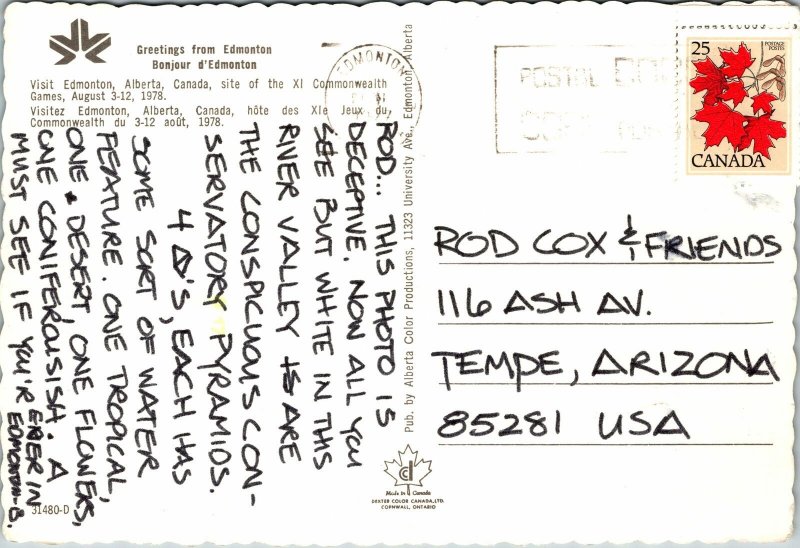 Greetings from Edmonton
Bonjour d'Edmonton
Visit Edmonton, Alberta, Canada, site of the XI Commonwealth
Games, August 3-12, 1978.
Visitez Edmonton, Alberta, Canada, hôte des XIe Jeux du
Commonwealth du 3-12 août, 1978.
ROD... THIS PHOTO IS
DECEPTIVE. NOW ALL YOU
SEE BUT WHITE IN THIS
RIVER VALLEY IS ARE
THE CONSPICUOUS CON-
SERVATORY PYRAMIDS.
4 Δ'S, EACH HAS
SOME SORT OF WATER
FEATURE. ONE TROPICAL,
ONE DESERT, ONE FLOWERS,
ONE CONIFEROUSISH. A
MUST SEE IF YOU'R EVER IN
EDMONTON-B.
31480-D
Pub. by Alberta Color Productions, 11323 University Ave., Edmonton, Alberta
EDMONTON
POSTAL CODE
25
POSTAGE
POSTES
CANADA
ROD COX & FRIENDS
116 ASH AV.
TEMPE, ARIZONA
85281 USA
Made in Canada
DEXTER COLOR CANADA, LTD.
CORNWALL, ONTARIO